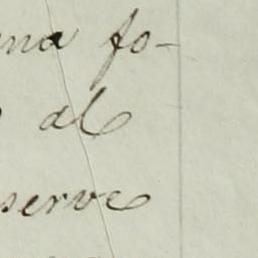 na fo-
al
serve